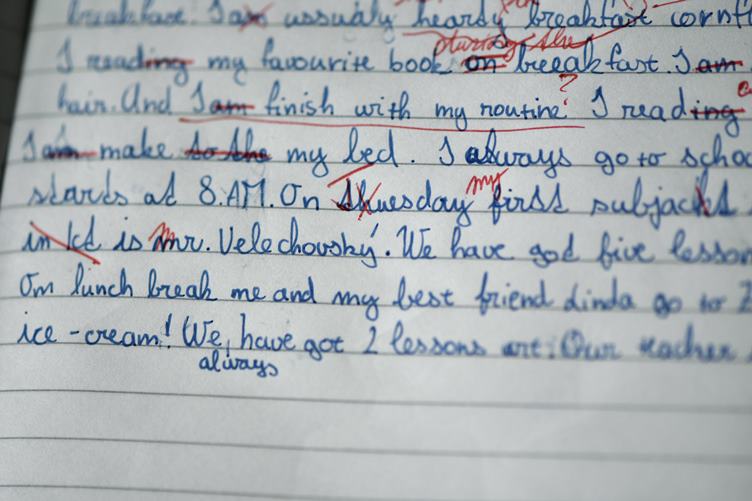 breakfast. I am ussualy heardy breakfast cornf
during the
I reading my favourite book on breeakfast. I am
?
hair. And I am finish with my routine I reading
I am make to the my bed. I always go to scho
starts at 8.AM. On Thuesday my first subjackt
in Kd is mr. Velechovský. We have god five lesson
On lunch break me and my best friend Linda go to
ice-cream! We, have got 2 lessons art. Our teacher
always